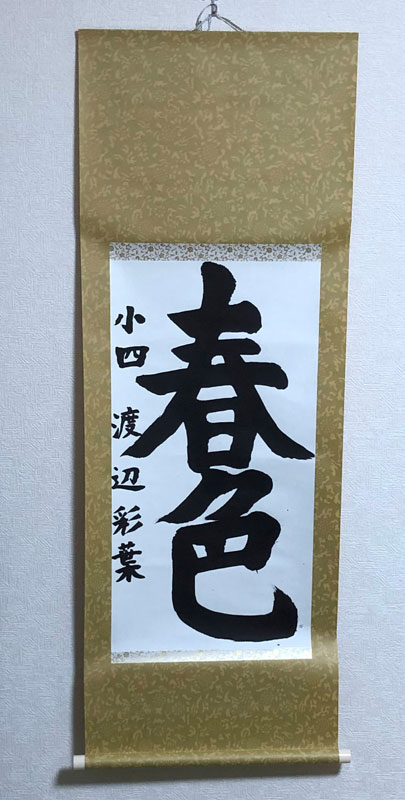 春色
小四 渡辺彩葉